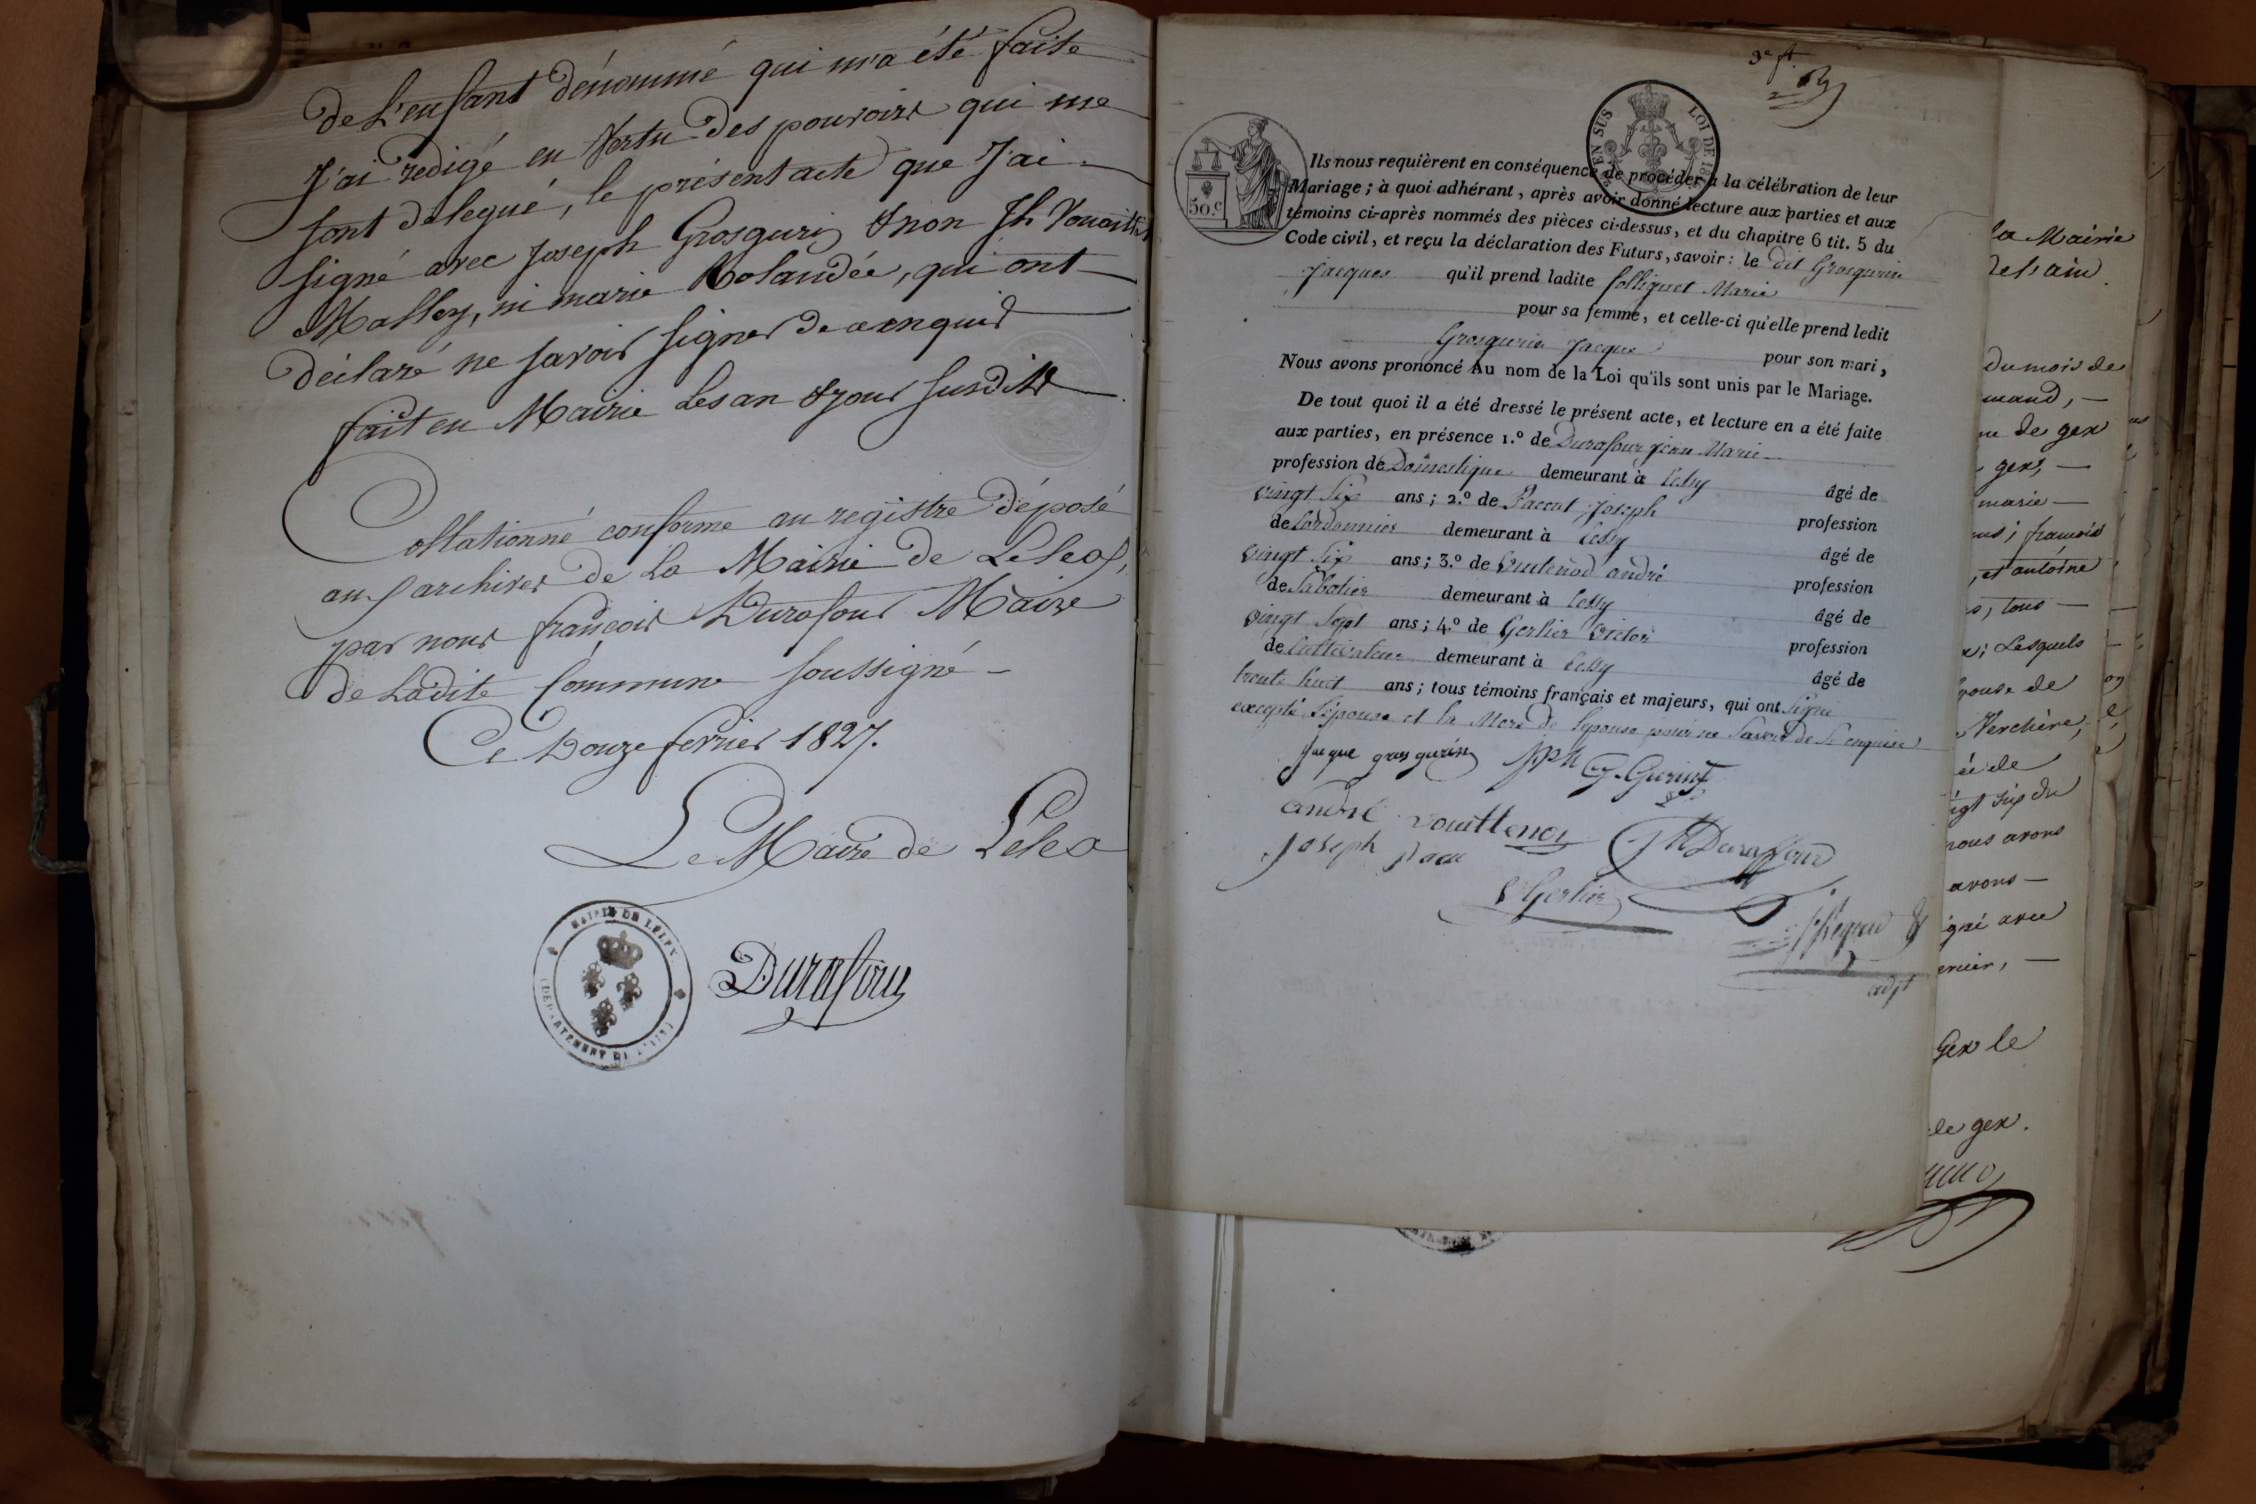 de L'enfant dénommé qui m'a été faite
J'ai redigé en Vertu des pouvoirs qui me
sont delegué, le présent acte que J'ai
signé avec Joseph Grosgurin & non Jh
Malley, ni marie Rolandée, qui ont
déclaré ne savoir signer de ce enquis
fait en Mairie Les an & jour susdits
Collationné conforme au registre déposé
aux archives de La Mairie de Lélex,
par nous françois Durafour Maire
de Ladite Commune soussigné
Ce Douze fevrier 1827.
Le Maire de Lélex
MAIRIE DE LELEX
DEPARTEMENT DE L'AIN
Durafour
3e ft.
EN SUS LOI DE
50 c
Ils nous requièrent en conséquence de procéder à la célébration de leur
Mariage ; à quoi adhérant, après avoir donné lecture aux parties et aux
témoins ci-après nommés des pièces ci-dessus, et du chapitre 6 tit. 5 du
Code civil, et reçu la déclaration des Futurs, savoir : le dit Grosgurin
Jacques qu'il prend ladite Golliguet Marie
pour sa femme, et celle-ci qu'elle prend ledit
Grosgurin Jacque pour son mari,
Nous avons prononcé Au nom de la Loi qu'ils sont unis par le Mariage.
De tout quoi il a été dressé le présent acte, et lecture en a été faite
aux parties, en présence 1.º de Durafour jean Marie
profession de Domestique demeurant à Cessy âgé de
vingt six ans ; 2.º de Paccut Joseph profession
de Cordonnier demeurant à Cessy âgé de
vingt six ans ; 3.º de Vuitenod andré profession
de Sabotier demeurant à Cessy âgé de
vingt Sept ans ; 4.º de Gerlier Victor profession
de Cultivateur demeurant à Cessy âgé de
trente huit ans ; tous témoins français et majeurs, qui ont signé
excepté l'épouse et la Mere de l'epouse pour ne Savoir de ce enquise
Jacque gros gurin Jph G. Gurin
andré vouittenot
Joseph pacu JM Duraffour
V Gerlier
adjt
la Mairie
de l'ain
du mois de
de gex
gex,
marie
françois
et antoine
tous
Lesquels
épouse de
Verchère,
nous avons
avons
signé avec
Gex le
de gex.